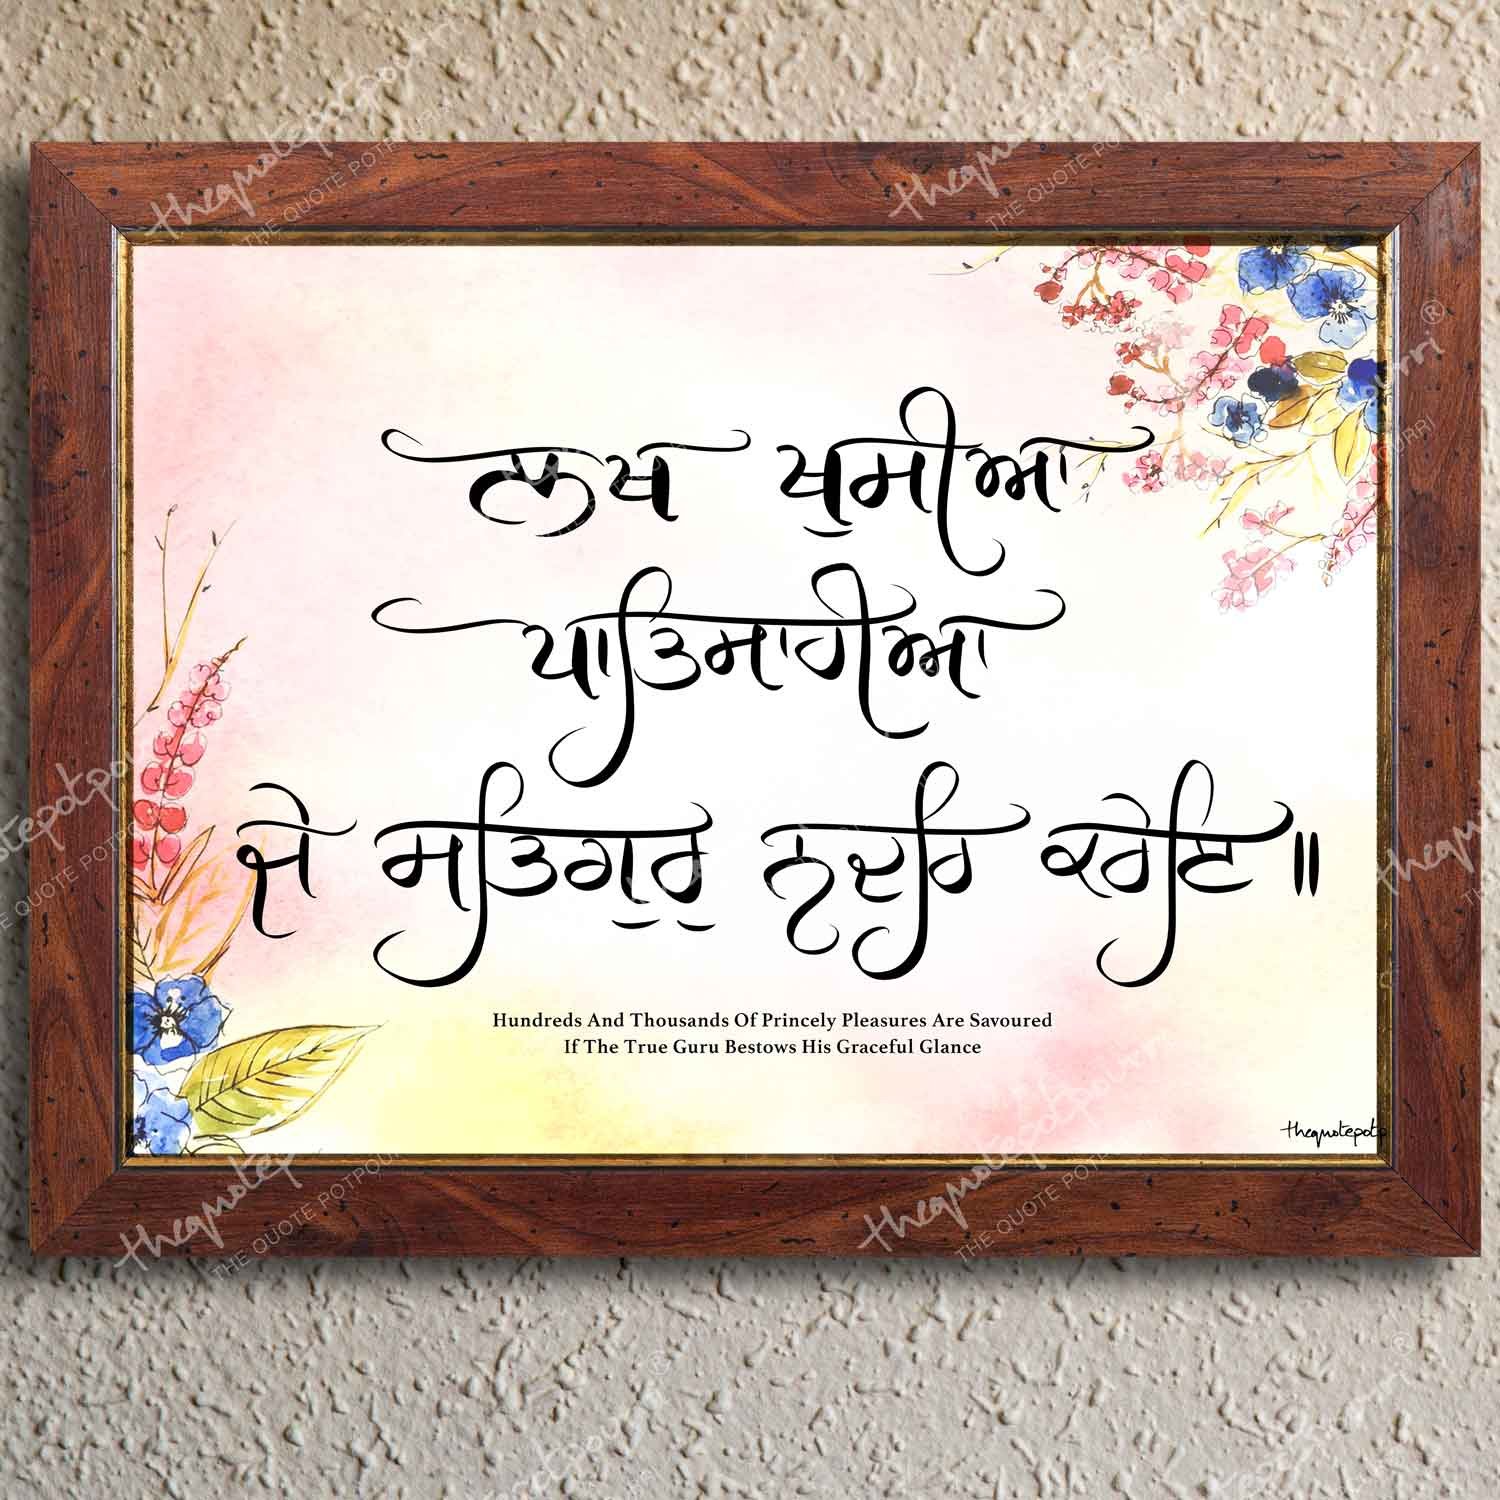 ਲਖ ਖੁਸੀਆ
ਪਾਤਿਸਾਹੀਆ
ਜੇ ਸਤਿਗੁਰੁ ਨਦਰਿ ਕਰੇਇ॥
Hundreds And Thousands Of Princely Pleasures Are Savoured
If The True Guru Bestows His Graceful Glance
thequotepotp
thequotepotpourri ®
THE QUOTE POTPOURRI